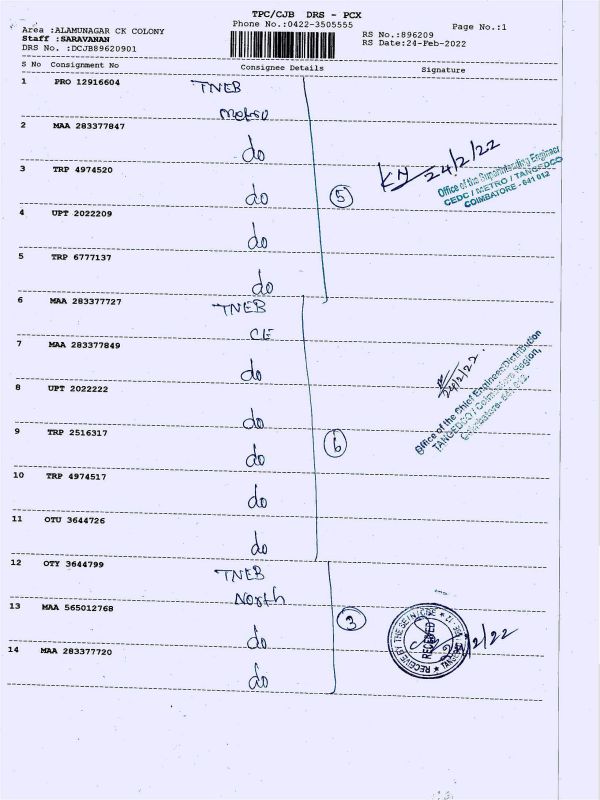 TPC/CJB DRS - PCX
Phone No.:0422-3505555
Page No.:1
Area :ALAMUNAGAR CK COLONY
Staff :SARAVANAN
DRS No. :DCJB89620901
RS No.:896209
RS Date:24-Feb-2022
S No Consignment No Consignee Details Signature
1 PRO 12916604 TNEB
Metro
2 MAA 283377847
do
3 TRP 4974520
do
4 UPT 2022209
do
5 TRP 6777137
do
5
KN 24/2/22
Office of the Superintending Engineer
CEDC / METRO / TANGEDCO
COIMBATORE - 641 012
6 MAA 283377727 TNEB
CE
7 MAA 283377849
do
8 UPT 2022222
do
9 TRP 2516317
do
10 TRP 4974517
do
11 OTU 3644726
do
6
24/2/22
Office of the Chief Engineer/Distribution
TANGEDCO / Coimbatore Region,
Coimbatore-
12 OTY 3644799 TNEB
North
13 MAA 565012768
do
14 MAA 283377720
do
3
RECEIVED
/2/22